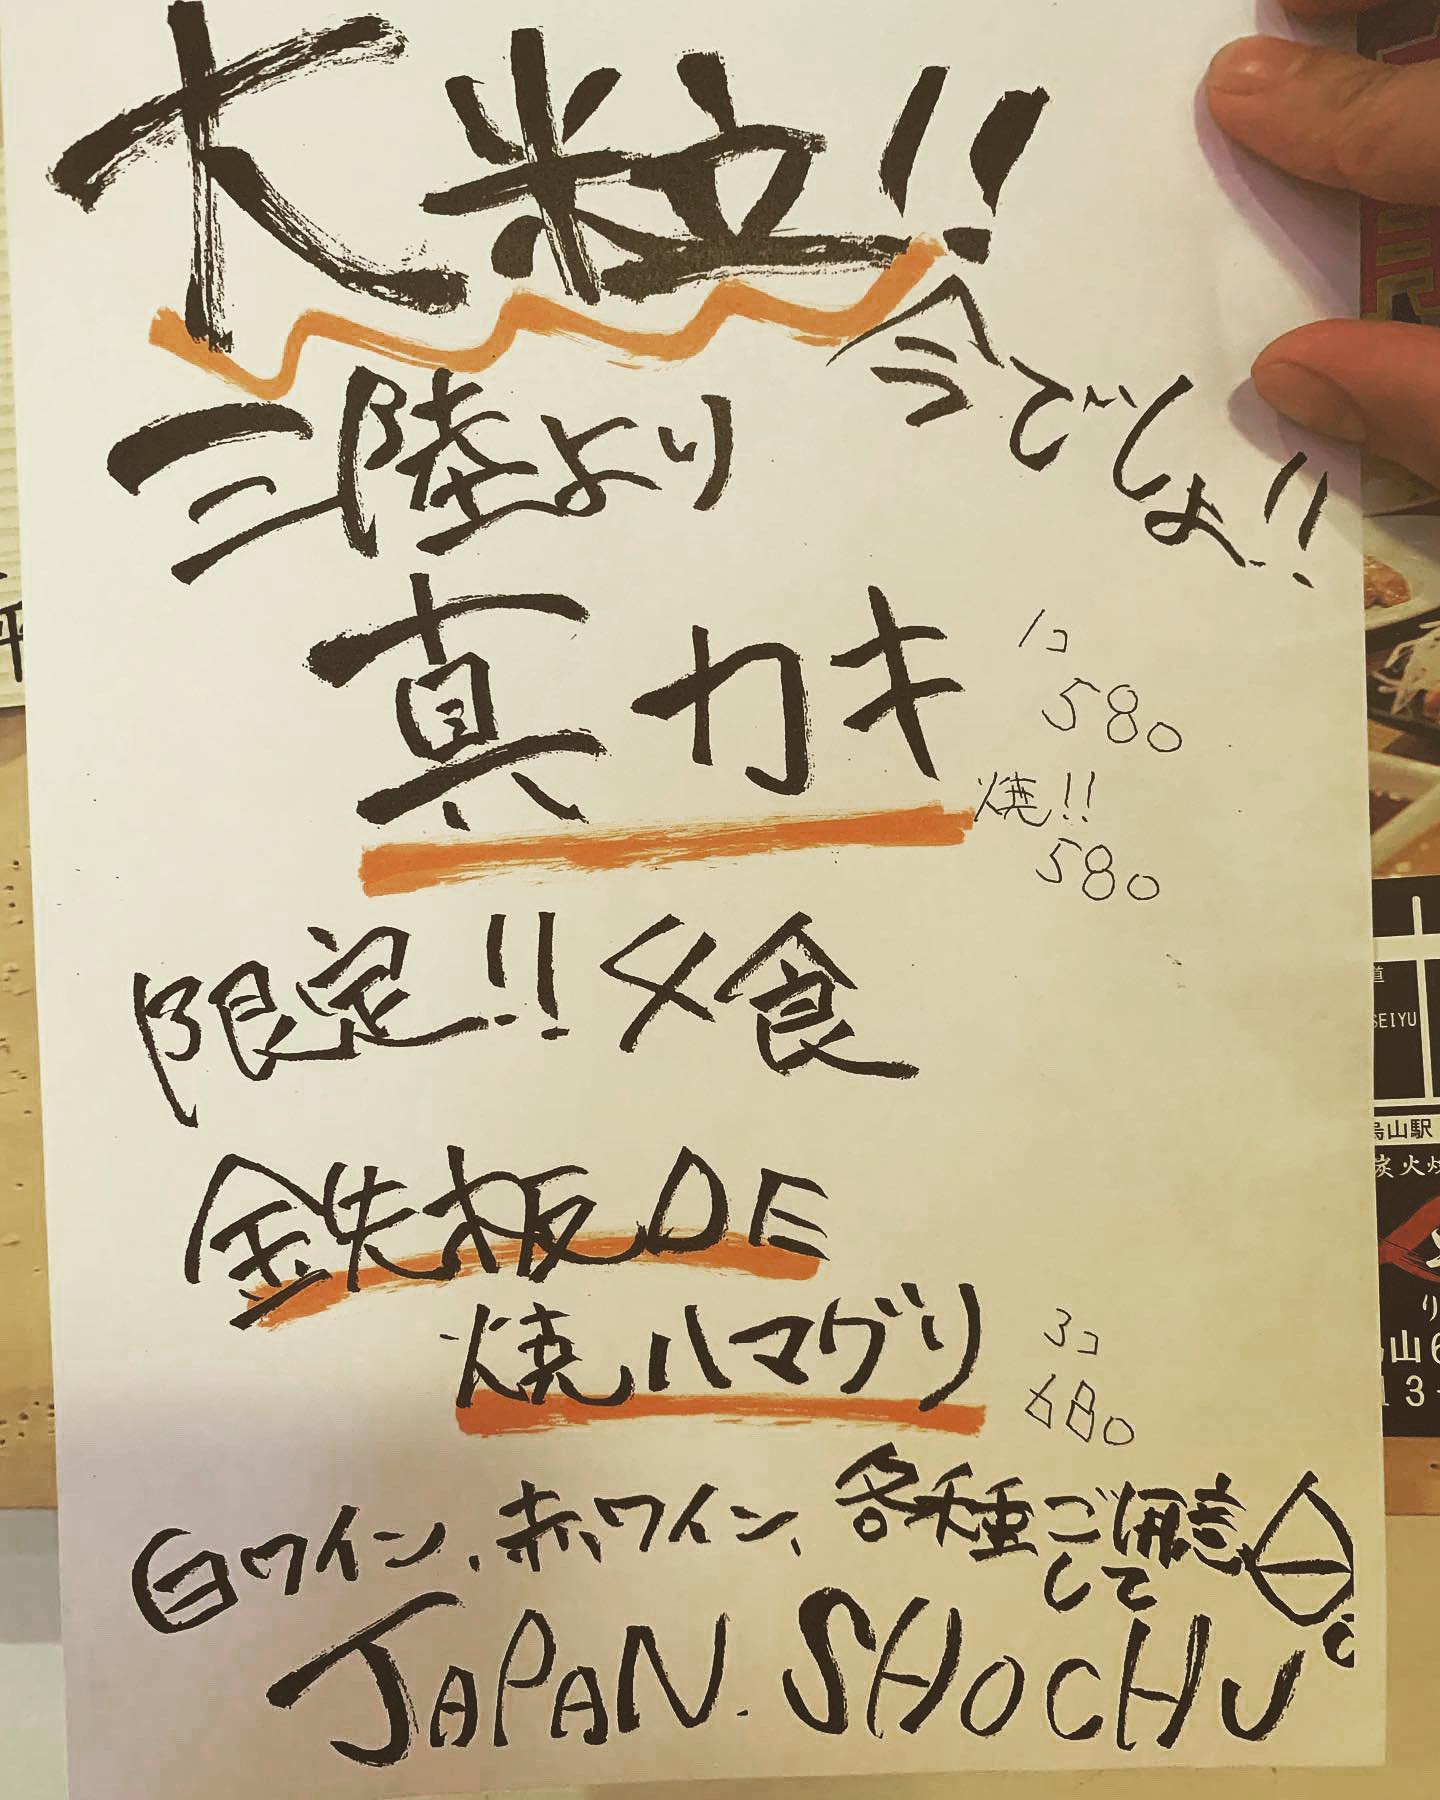 大粒!!
今でしょ!!
三陸より
真カキ
1コ
580
焼!!
580
限定!!夕食
鉄板DE
焼ハマグリ
3コ
680
白ワイン、赤ワイン、各種ご用意
して
〼。
JAPAN.SHOCHU
道
SEIYU
烏山駅
炭火焼
り
山6
13